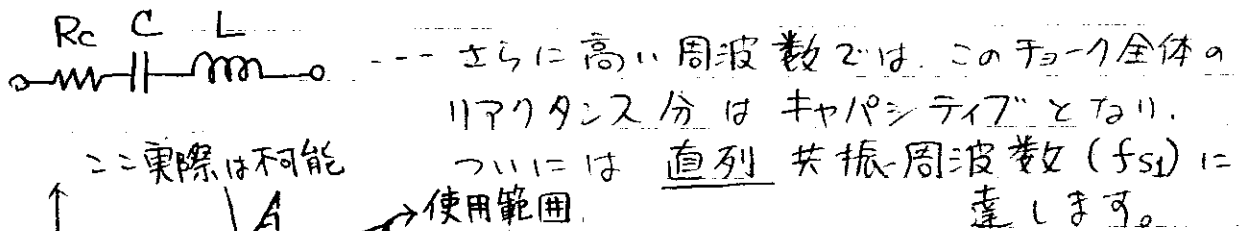 Rc C L
--- さらに高い周波数では、このチョーク全体の
リアクタンス分はキャパシティブとなり、
ついには 直列 共振周波数 (fs1) に
達します。
ここ実際は不可能
使用範囲